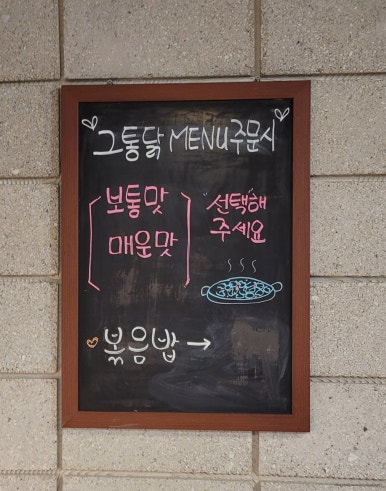 그통닭 MENU 주문시
보통맛
매운맛
"선택"해
주세요
볶음밥 →